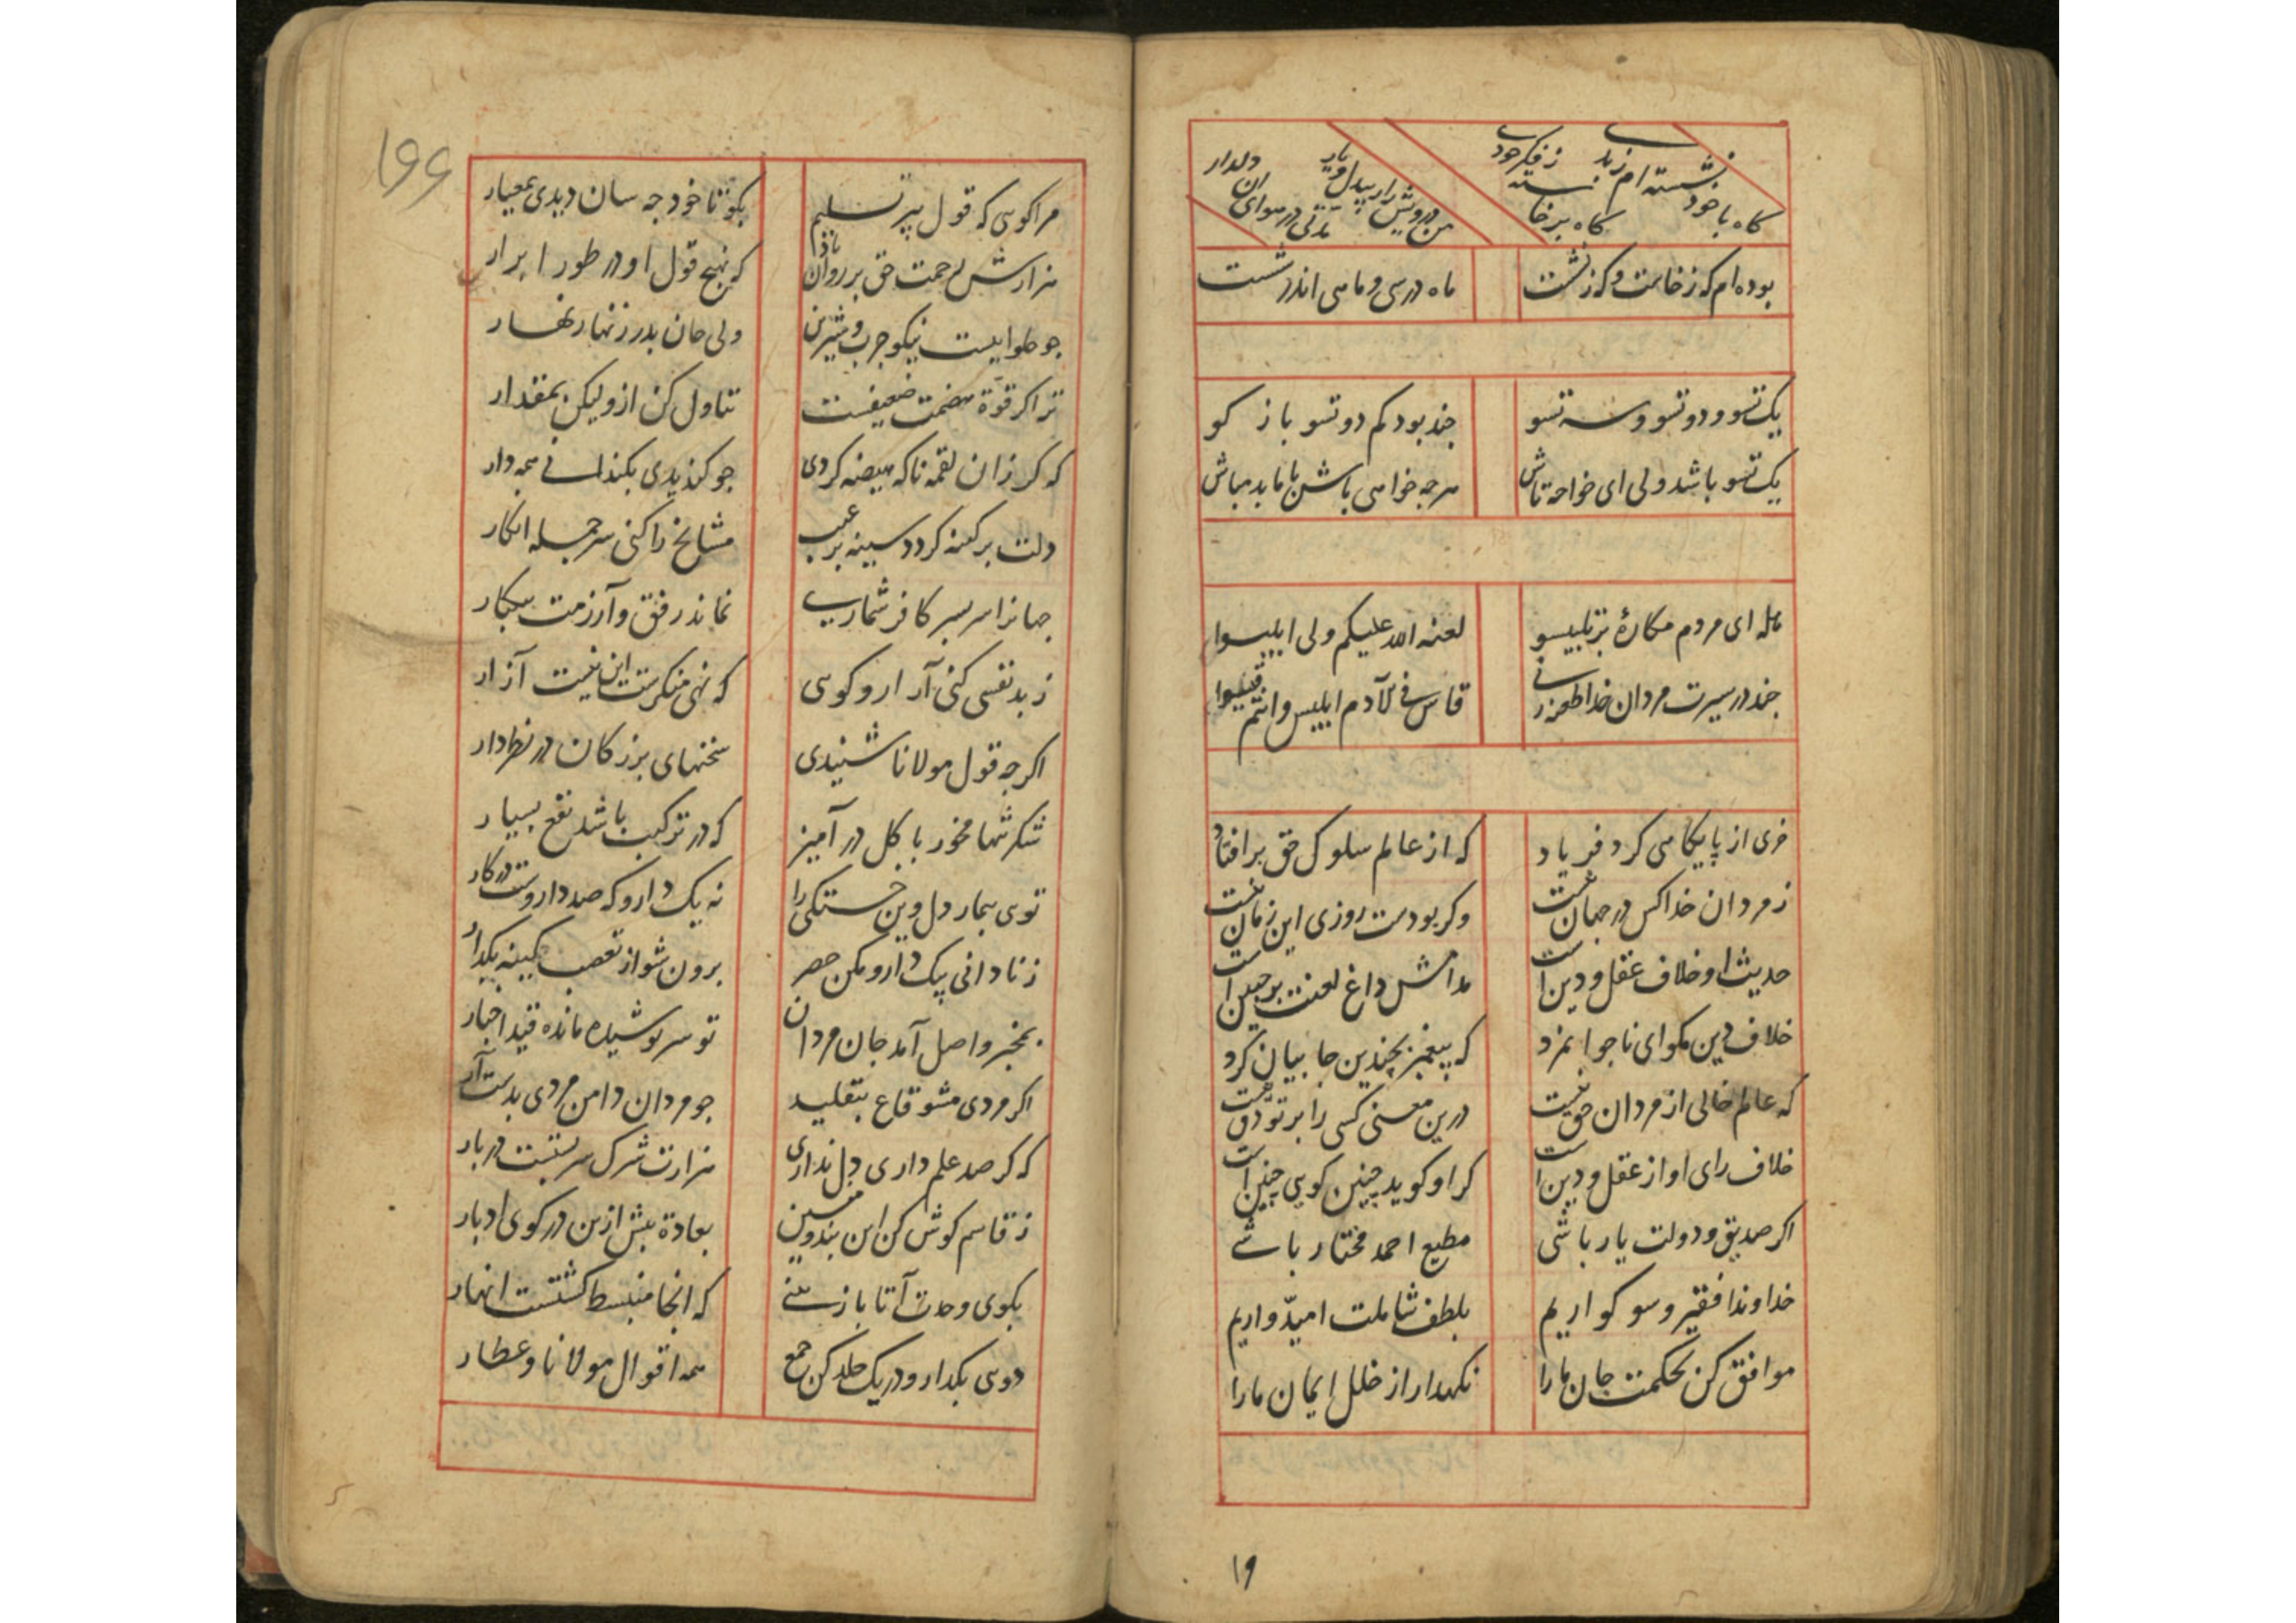 گاه با خود نشسته ام زبدے
گاه برخاسته ز فکر خودے
من درویش زار بیدل و یار
مدتی در هوای ان دلدار
بوده ام که ز خاست و که ز نشست
ماه در سی و ماهی اندر شست
یک تسو و دو تسو و سه تسو
چند بود کم دو تسو باز کو
یک تسو باشد ولی ای خواجه تاش
هرجه خواهی باش با ما بد مباش
هله ای مردم مکارهٔ بر تلبیسو
لعنه الله علیکم ولی ابلیسوا
چند در سیرت مردان خدا طعنه زنے
خری از پایکاهی کرد فریاد
که از عالم سلوک حق برافتاد
ز مردان خدا کس در جهان نیست
وکر بودست روزی این زمان نیست
حدیث او خلاف عقل و دین است
مدامش داغ لعنت بر جبین است
خلاف دین مکو ای ناجوانمرد
که پیغمبر بچندین جا بیان کرد
که عالم خالی از مردان حق نیست
درین معنی کسی را بر تو دق نیست
خلاف رای او از عقل و دین است
کر او کوید چنین کویی چنین است
اکر صدیق و دولت یار باشی
مطیع احمد مختار باشے
خداوندا فقیر و سوکواریم
بلطف شاملت امیدواریم
موافق کن بحکمت جان ما را
نکهدار از خلل ایمان ما را
۱۹
۱۶۶
مرا کوسی که قول پیر تسلیم
بکو تا خود جه سان دیدی بمعیار
هزارش رحمت حق بر روان باد
که نهج قول او در طور ابرار
جو حلواییست نیکو جرب و شیرین
ولی جان پدر زنهار زنهار
ترا کر قوة هضمت ضعیفست
تناول کن ازو لیکن بمقدار
که کر زان لقمه ناکه هیضه کردی
دلت بر کینه کردد سینه بر عیب
مشایخ را کنی سر جمله انکار
جهانرا سر بسر کافر شمارے
نماند رفق و آزرمت بیکبار
ز بد نفسی کنی آزار و کوسی
که نهی منکرست این نیست آزار
اکرجه قول مولانا شنیدی
سخنهای بزرکان در نظر دار
شکر تنها مخور با کل در آمیز
که در ترکیب باشد نفع بسیار
توی بیمار دل وین خستکی را
نه یک دارو که صد داروست در کار
ز نادانی بیک دارو مکن حصر
برون شو از تعصب کینه بکذار
بمخبر واصل آمد جان مردان
تو سر پوشیده مانده قید اخبار
اکر مردی مشو قانع بتقلید
جو مردان دامن مردی بدست آر
که کر صد علم داری دل نداری
هزارت شرک سر بستست در بار
ز قاسم کوش کن این پند و منشین
بعادة بیش ازین در کوی ادبار
بکوی وحدت آ تا باز بینے
که انجا منبسط کشتست انهار
دوسی بکذار و در یک جلد کن جمع
همه اقوال مولانا و عطار